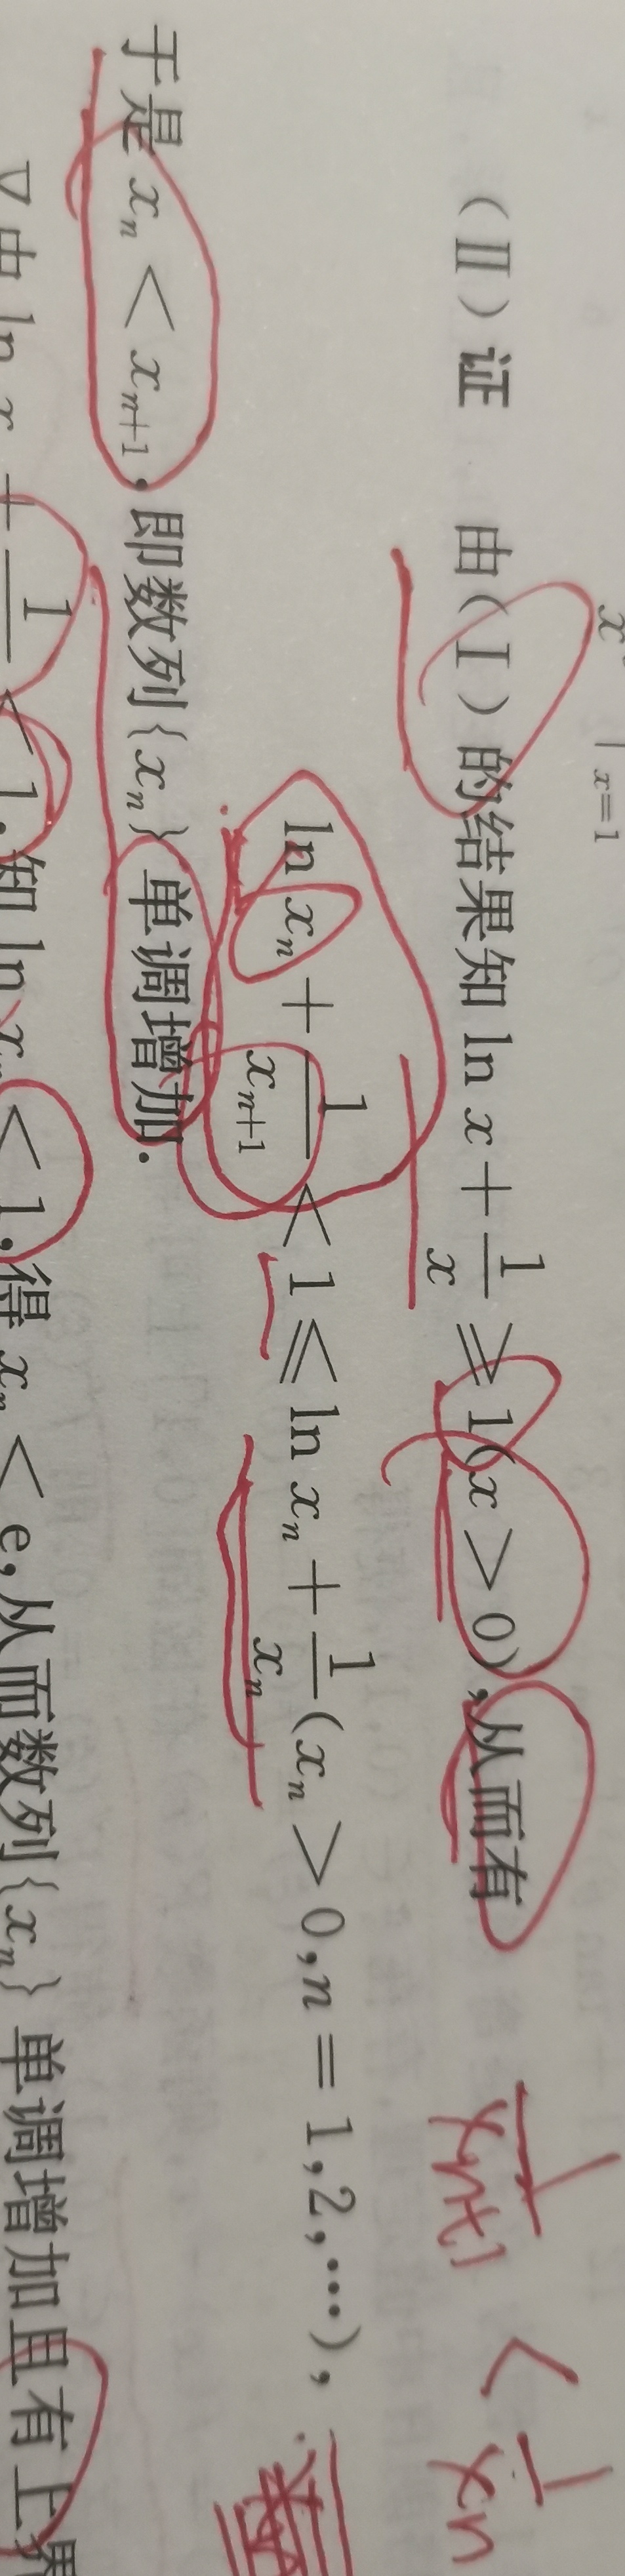 x | x=1
(Ⅱ)证 由(Ⅰ)的结果知 ln x + 1/x ≥ 1(x > 0),从而有
ln xₙ + 1/xₙ₊₁ < 1 ≤ ln xₙ + 1/xₙ (xₙ > 0, n = 1,2,…),
1/xₙ₊₁ < 1/xₙ
于是 xₙ < xₙ₊₁. 即数列{xₙ}单调增加.
又由 ln x + 1/ < 1. 知 ln xₙ < 1, 得 xₙ < e, 从而数列{xₙ} 单调增加且有上界